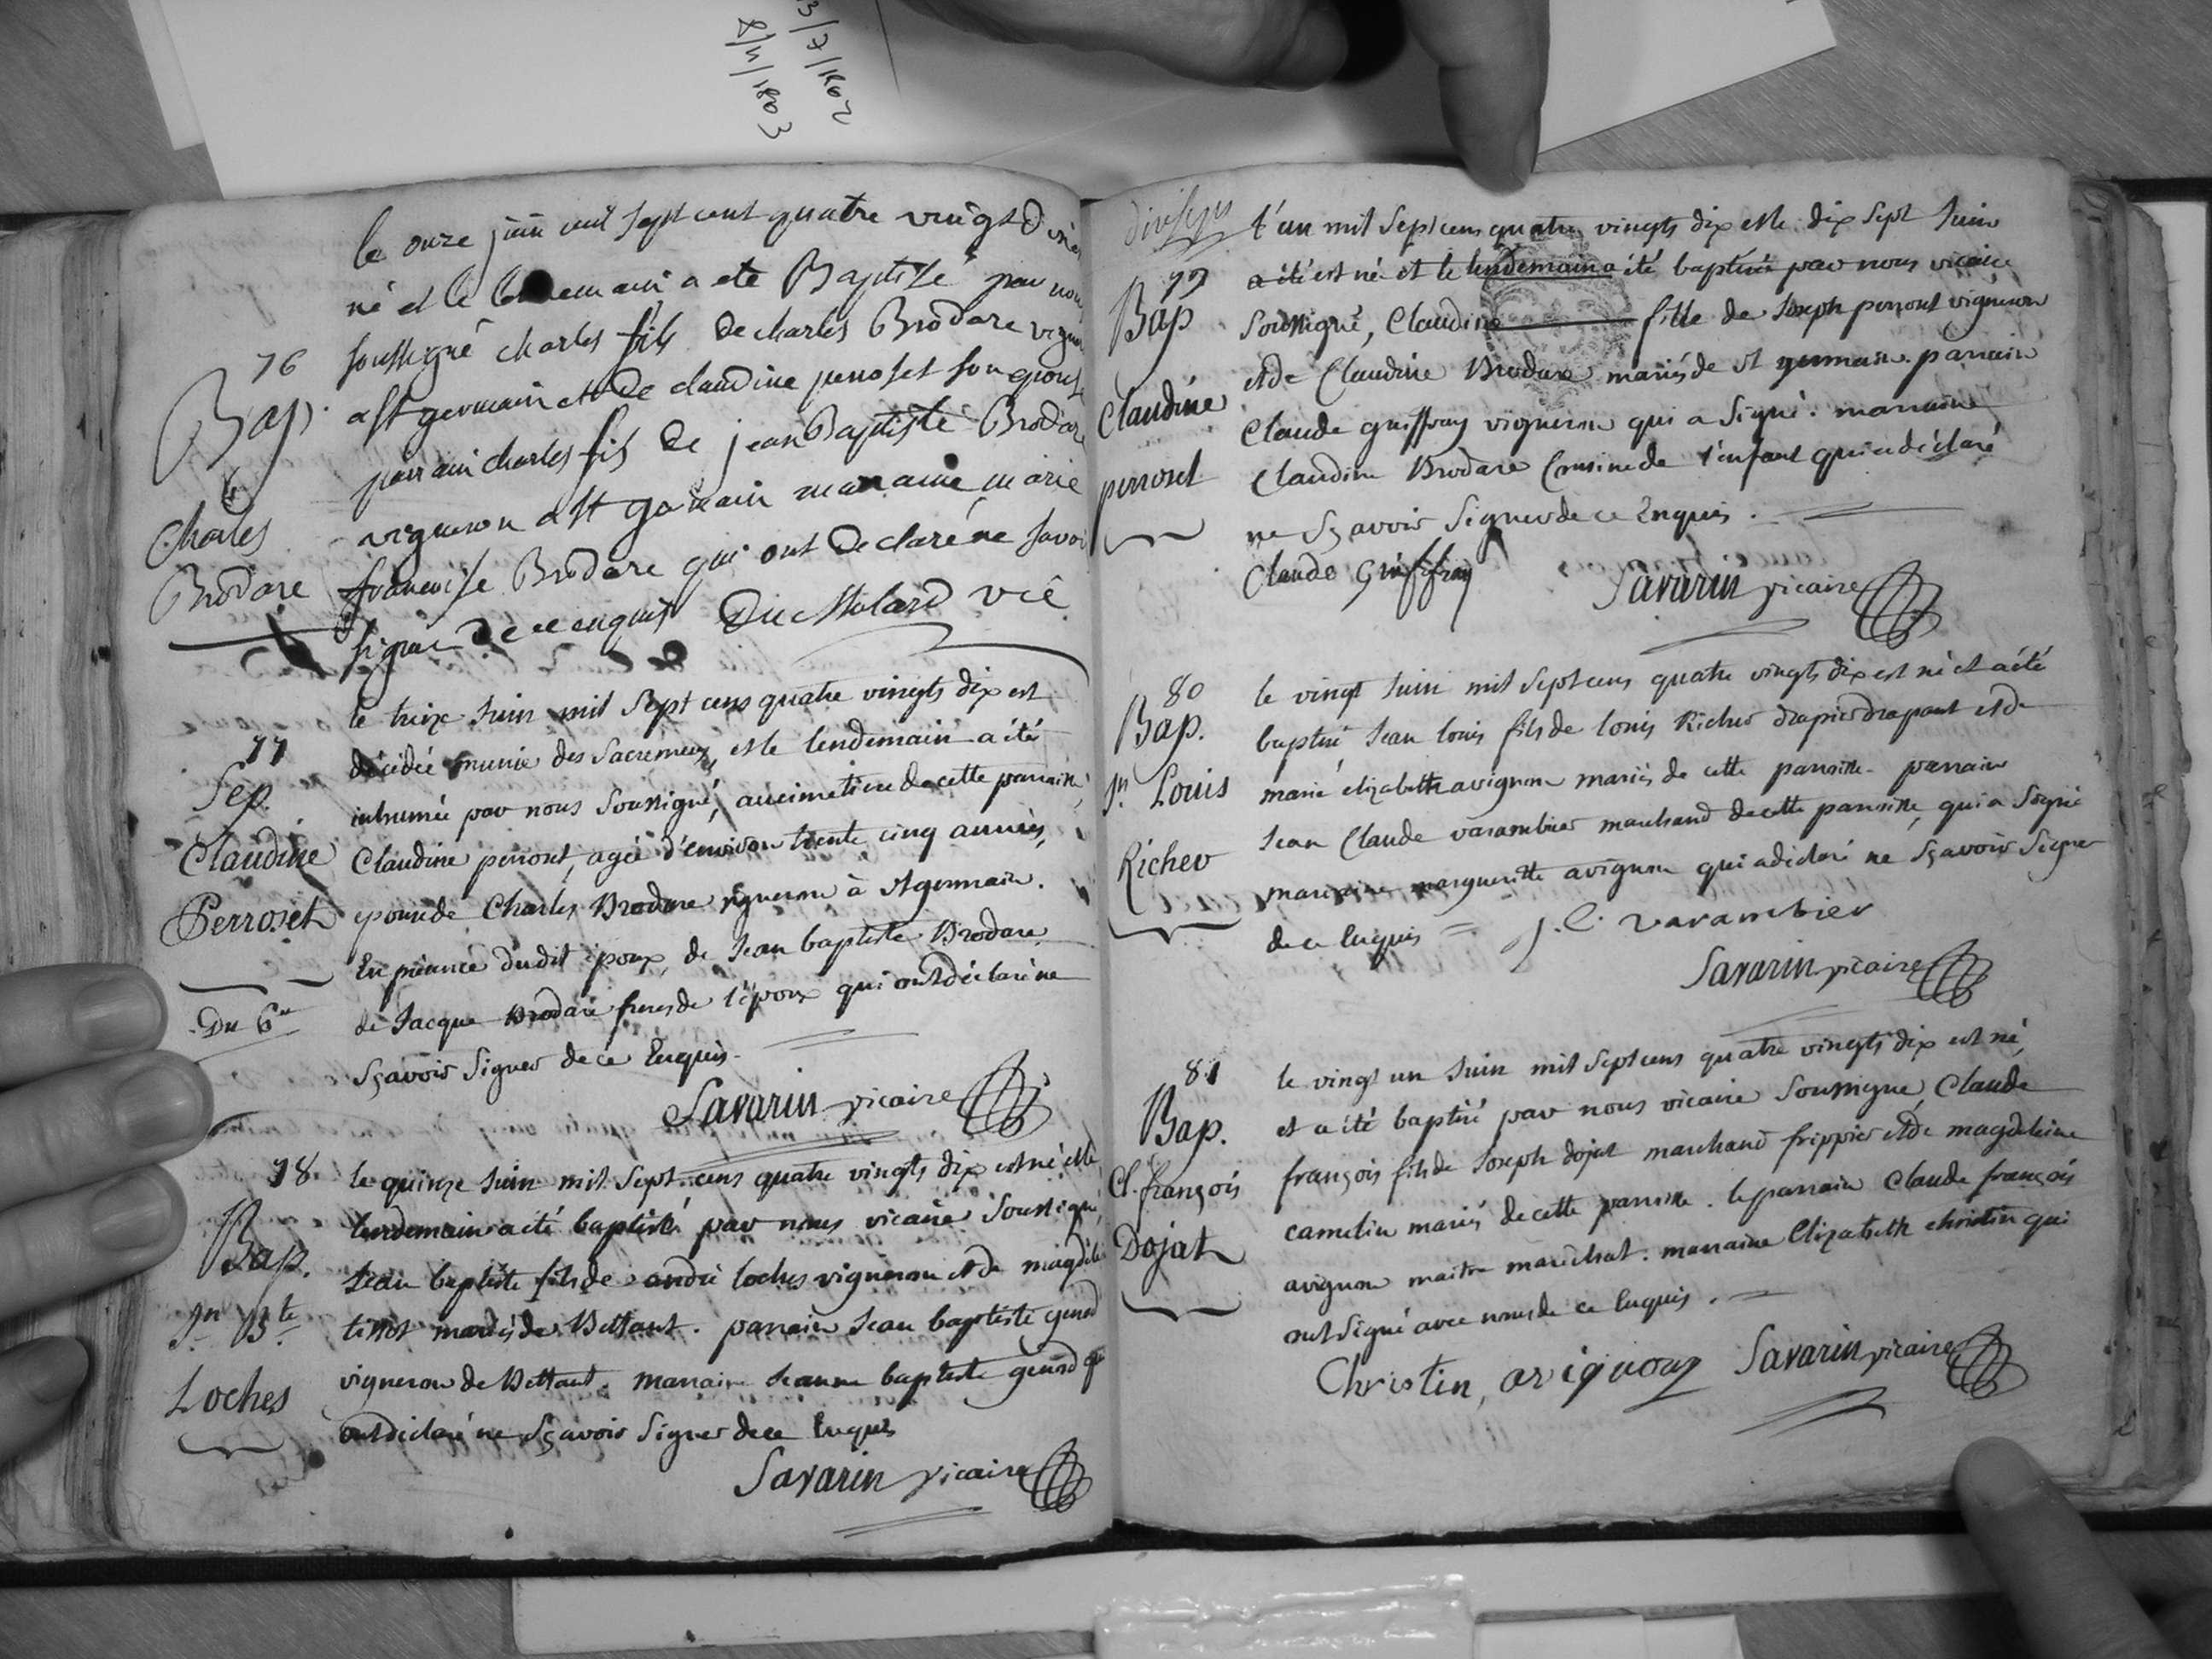 13/7/1802
8/11/1803
le onze juin mil sept cent quatre vingt dix est
né et le lendemain a ete Baptisé par nous
76
soussigné charles fils de charles Brodare vigneron
Bap.
a st germain et de claudine perroset son epouse
parrain charles fils de jean Baptiste Brodare
vigneron a st germain marraine marie
Charles
Brodare
francoise Brodare qui ont declaré ne savoir
signer de ce enquis Du Molard vic
le treize Juin mil Sept cens quatre vingts dix est
77
décédée munie des Sacremens, et le lendemain a été
Sep.
inhumée par nous Soussigné, au cimetiere de cette paroisse,
Claudine
Claudine perroset, agée d'environ trente cinq années,
Perroset
epouse de Charles Brodare vigneron à st germain.
En présence dudit époux, de Jean baptiste Brodare
Du 6e
de Jacque Brodare freres de l'époux qui ont déclaré ne
Sçavoir Signer de ce Enquis.
Savarin vicaire
78
le quinze Juin mil Sept cens quatre vingts dix est né et le
lendemain a été baptisé par nous vicaire Soussigné,
Bap.
Jean baptiste fils de andré loches vigneron et de magdele
Jn Bte
tissot mariés de Bettant. parrain Jean baptiste genod
Loches
vigneron de Bettant. marraine Jeanne baptiste genod qui
ont déclaré ne Sçavoir Signer de ce Enquis
Savarin vicaire
dixsept
l'an mil Sept cens quatre vingts dix et le dix Sept Juin
79
a été est né et le lendemain a été baptisée par nous vicaire
Bap
Soussigné, Claudine fille de Joseph perroset vigneron
et de Claudine Brodare mariés de st germain. parrain
Claudine
Claude guiffray vigneron qui a Signé. marraine
perroset
Claudine Brodare Cousine de l'enfant qui a déclaré
ne Sçavoir Signer de ce Enquis.
Claude Guiffray
Savarin vicaire
80
le vingt Juin mil Sept cens quatre vingts dix est né et a été
Bap.
baptisé Jean louis fils de louis Richer drapier drapant et de
Jn Louis
marié elizabeth avignon mariés de cette paroisse. parrain
Richer
Jean Claude varambier marchand de cette paroisse, qui a Signé
marraine margueritte avignon qui a déclaré ne Sçavoir Signer
de ce Enquis = J. C. varambier
Savarin vicaire
81
le vingt un Juin mil Sept cens quatre vingts dix est né,
Bap.
et a été baptisé par nous vicaire Soussigné, Claude
Cl. françois
françois fils de Joseph dojat marchand frippier et de magdeleine
Dojat
camelin mariés de cette paroisse. le parrain Claude françois
avignon maitre maréchal. marraine Elizabeth christin qui
ont Signé avec nous de ce Enquis.
Christin, avignon Savarin vicaire